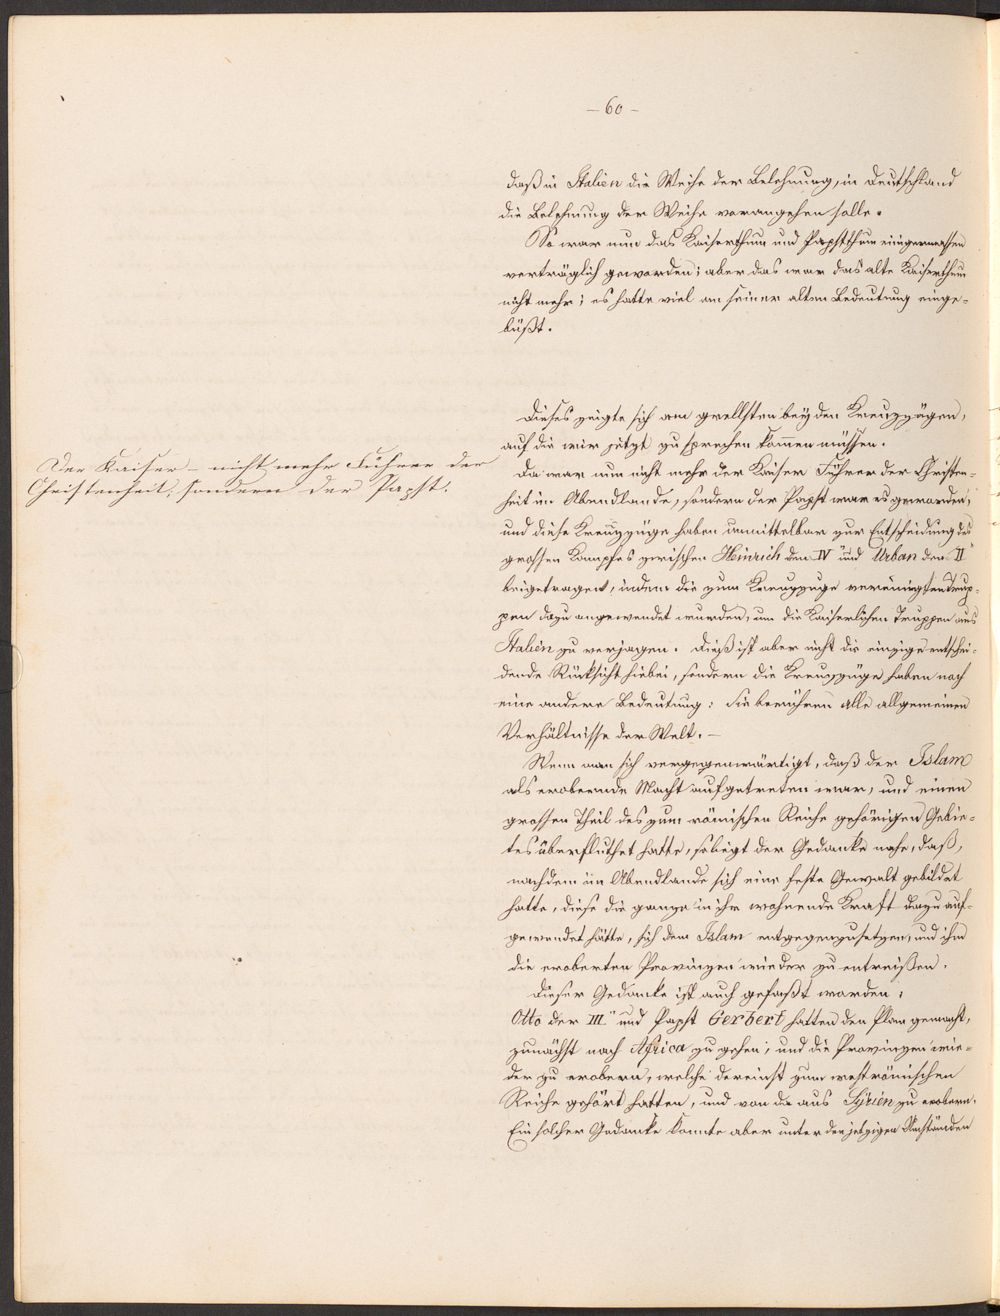 – 60 –
daß in Italien die Weihe der Belehnung, in Deutschland
die Belehnung der Weihe vorangehen solle.
So war nun das Kaiserthum und Papstthum einigermassen
verträglich geworden; aber das war das alte Kaiserthum
nicht mehr; es hatte viel an seiner alten Bedeutung einge-
büßt.
Dieses zeigte sich am grellsten bey den Kreuzzügen,
auf die wir jetzt zu sprechen kommen müssen.
Der Kaiser – nicht mehr Führer der
Christenheit, sondern der Papst.
Da war nun nicht mehr der Kaiser Führer der Christen-
heit im Abendlande, sondern der Papst war es geworden;
und diese Kreuzzüge haben unmittelbar zur Entscheidung des
grossen Kampfes zwischen Heinrich den IV" und Urban den II"
beigetragen, indem die zum Kreuzzuge vereinigten Trup-
pen dazu angewendet wurden, um die Kaiserlichen Truppen aus
Italien zu verjagen. Dieß ist aber nicht die einzige entschei-
dende Rücksicht hiebei, sondern die Kreuzzüge haben noch
eine andere Bedeutung: Sie berühren alle allgemeinen
Verhältnisse der Welt. –
Wenn man sich vergegenwärtigt, daß der Islam
als erobernde Macht aufgetreten war, und einen
grossen Theil des zum römischen Reiche gehörigen Gebie-
tes überfluthet hatte, so liegt der Gedanke nahe, daß,
nachdem im Abendlande sich eine feste Gewalt gebildet
hatte, diese die ganze in ihr wohnende Kraft dazu auf-
gewendet hätte, sich dem Islam entgegenzusetzen, und ihm
die eroberten Provinzen wieder zu entreißen.
Dieser Gedanke ist auch gefaßt worden;
Otto der III" und Papst Gerbert hatten den Plan gemacht,
zunächst nach Africa zu gehen, und die Provinzen wie-
der zu erobern, welche dereinst zum weströmischen
Reiche gehört hatten, und von da aus Syrien zu erobern.
Ein solcher Gedanke konnte aber unter den jetzigen Umständen